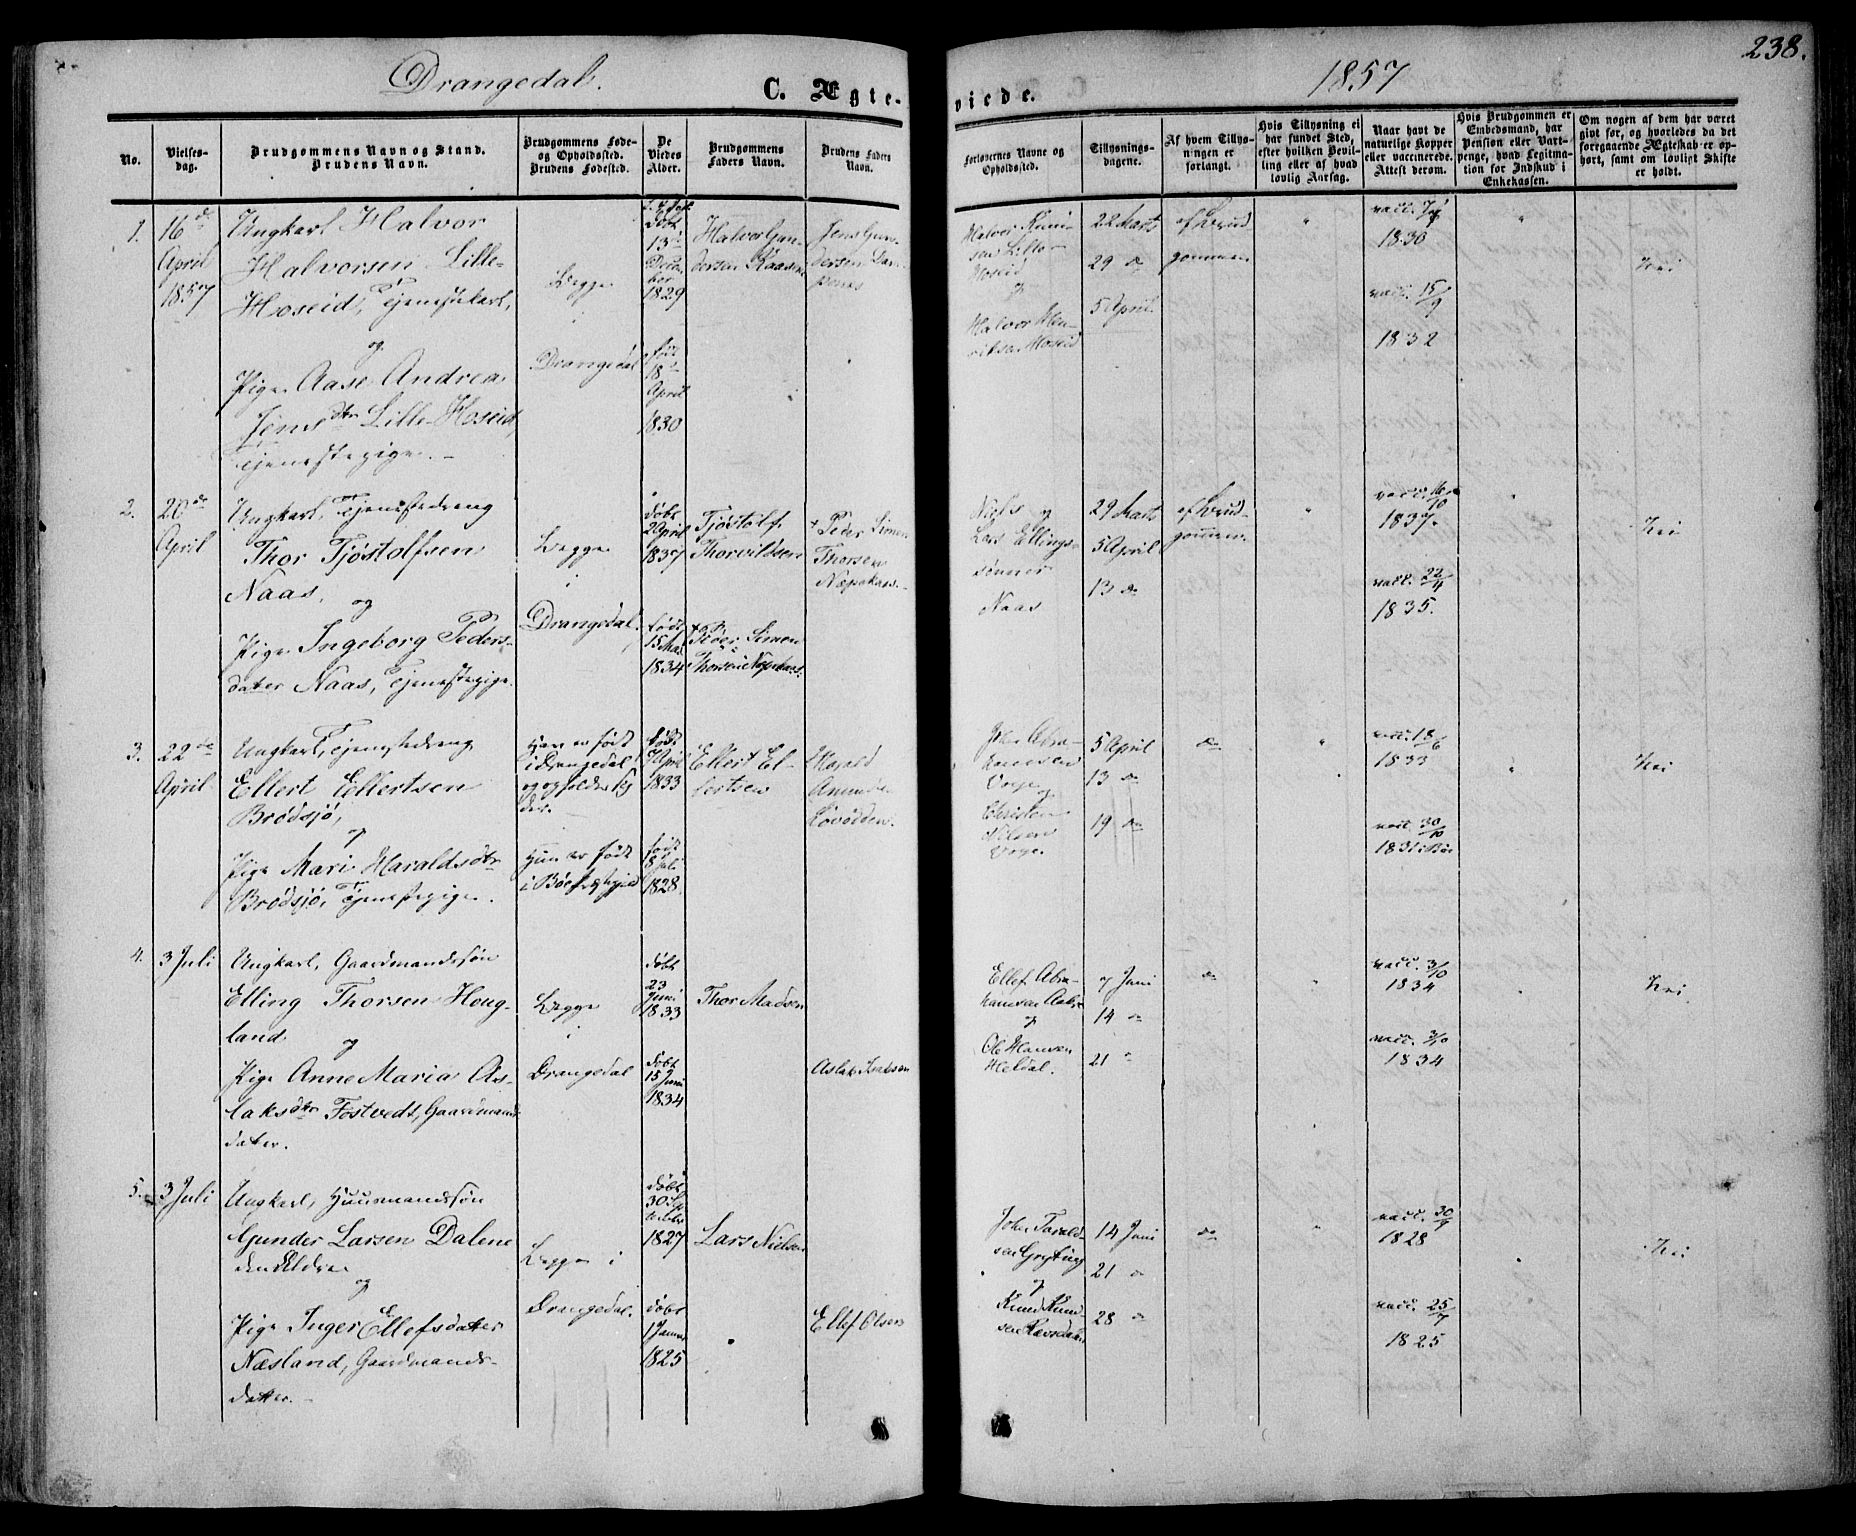 238.
Drangedal.
C. Ægte-
viede.
1857
No.
Vielses-
dag.
Brudgommens Navn og Stand.
Brudens Navn.
Brudgommens Føde-
og Opholdssted.
Brudens Fødested.
De
Viedes
Alder.
Brudgommens
Faders Navn.
Brudens Faders
Navn.
Forlovernes Navne og
Opholdssted.
Tillysnings-
dagene.
Af hvem Tillys-
ningen er
forlangt.
Hvis Tillysning ei
har fundet Sted,
efter hvilken Bevil-
ling eller af hvad
lovlig Aarsag.
Naar havt de
naturlige Kopper
eller vaccinerede.
Attest derom.
Hvis Brudgommen er
Embedsmand, har
Pension eller Vart-
penge, hvad Legitima-
tion for Indskud i
Enkekassen.
Om nogen af dem har været
givt før, og hvorledes da det
foregaaende Ægteskab er op-
hørt, samt om lovligt Skifte
er holdt.
1.
16de
April
1857
Ungkarl Halvor
Halvorsen Lille-
Hoseid, Tjenestekarl,
og
Pige Aase Andrea
Jensdtr Lille Hoseid,
Tjenestepige.
Begge
i
Drangedal
døbt
13de
Decem
ber
1829
født
18de
April
1830
Halvor Gun-
dersen Kaasene
Jens Gun-
dersen
Halvor
Lille-
Hoseid
og
Halvor Hen-
riksen Hoseid
22 Marts
29 do
5 April
af Brud
gommen
vacc.
1830
vacc. 15/9
1832
Nei
2.
20de
April
Ungkarl, Tjenestedreng
Thor Tjøstolfsen
Naas,
og
Pige Ingeborg Peders-
datter Naas, Tjenestepige.
Begge
i
Drangedal.
døbt
2 April
1837
født
15 Mai
1834
Tjøstolf
Thorvildsen
Simen
+ Peder Simen
Thorsen
Næpekaas.
Niels og
Lars Ellings-
sønner
Naas
29 Marts
5 April
13 do
af Brud-
gommen
vacc.
1837.
vacc. 22/4
1835.
Nei
3.
22de
April
Ungkarl, Tjenestedreng
Ellert Ellertsen
Brødsjø,
og
Pige Mari Haraldsdtr
Brødsjø, Tjenestepige.
Han er født
i Drangedal
og opholder sig
der.
Hun er født
i Bøe Præstegjeld
født
7 April
1833
født
8 Juli
1828
Ellert El-
lertsen
Harald
Løvodden.
John Abra-
hamsen
Voje og
Christen
Nilsen
Voje.
5 April
13 do
19 do
do
vacc. 18/6
1833
vacc. 30/10
1831: Bøe
Nei
4.
3 Juli
Ungkarl, Gaardmandssøn
Elling Thorsen Houg-
land
og
Pige Anne Maria As-
laksdtr Tostvedt, Gaardmands
datter.
Begge
i
Drangedal
døbt
23
Juni
1833
døbt
15 Juni
1834
Thor Madsen
Aslak Isaksen
Ellef Abra-
hamsen
og
Ole Hansen
Heldal.
7 Juni
14 do
21 "
do
vacc. 3/10
1834
vacc. 3/10
1834
Nei
5.
3 Juli
Ungkarl, Huusmandssøn
Gunder Larsen Dalene
den Eldre
og
Pige Inger Ellefsdatter
Næsland, Gaardmands-
datter.
Begge i
Drangedal.
døbt
30 Sep
tember
1827
døbt
1 Januar
1825
Lars Nielsen
Ellef Olsen
John Tarald-
sen Grytting
og
Knud Knud
sen
14 Juni
21 do
28 "
do
vacc. 30/9
1828
vacc. 25/7
1825
Nei